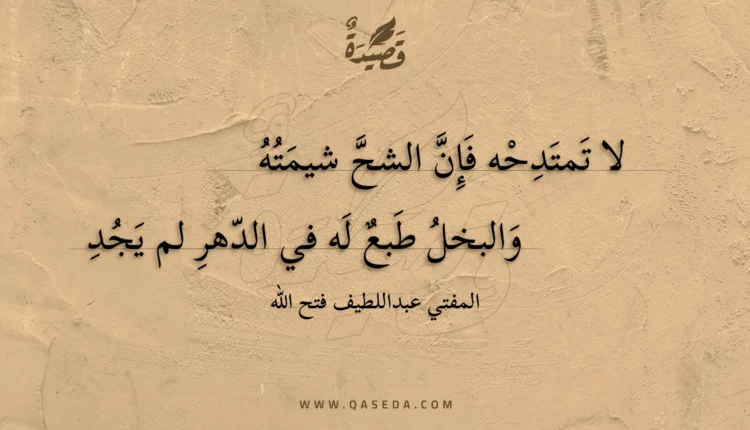 قَصِيْدَةٌ
لا تَمتَدِحْه فَإِنَّ الشحَّ شيمَتُهُ
وَالبخلُ طَبعٌ لَه في الدّهرِ لم يَجُدِ
المفتي عبداللطيف فتح الله
WWW.QASEDA.COM